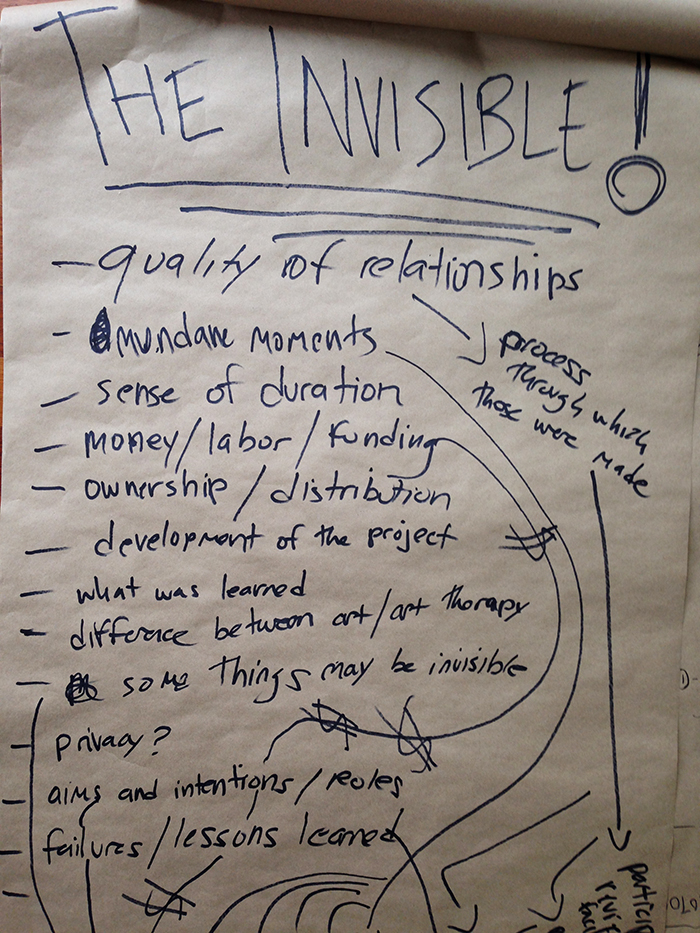 THE INVISIBLE!
- quality of relationships
- mundane moments
process
through which
those were made
- sense of duration
- money/labor/funding
- ownership/distribution
- development of the project
- what was learned
- difference between art/art therapy
- some things may be invisible
- privacy?
- aims and intentions/roles
- failures/lessons learned
-